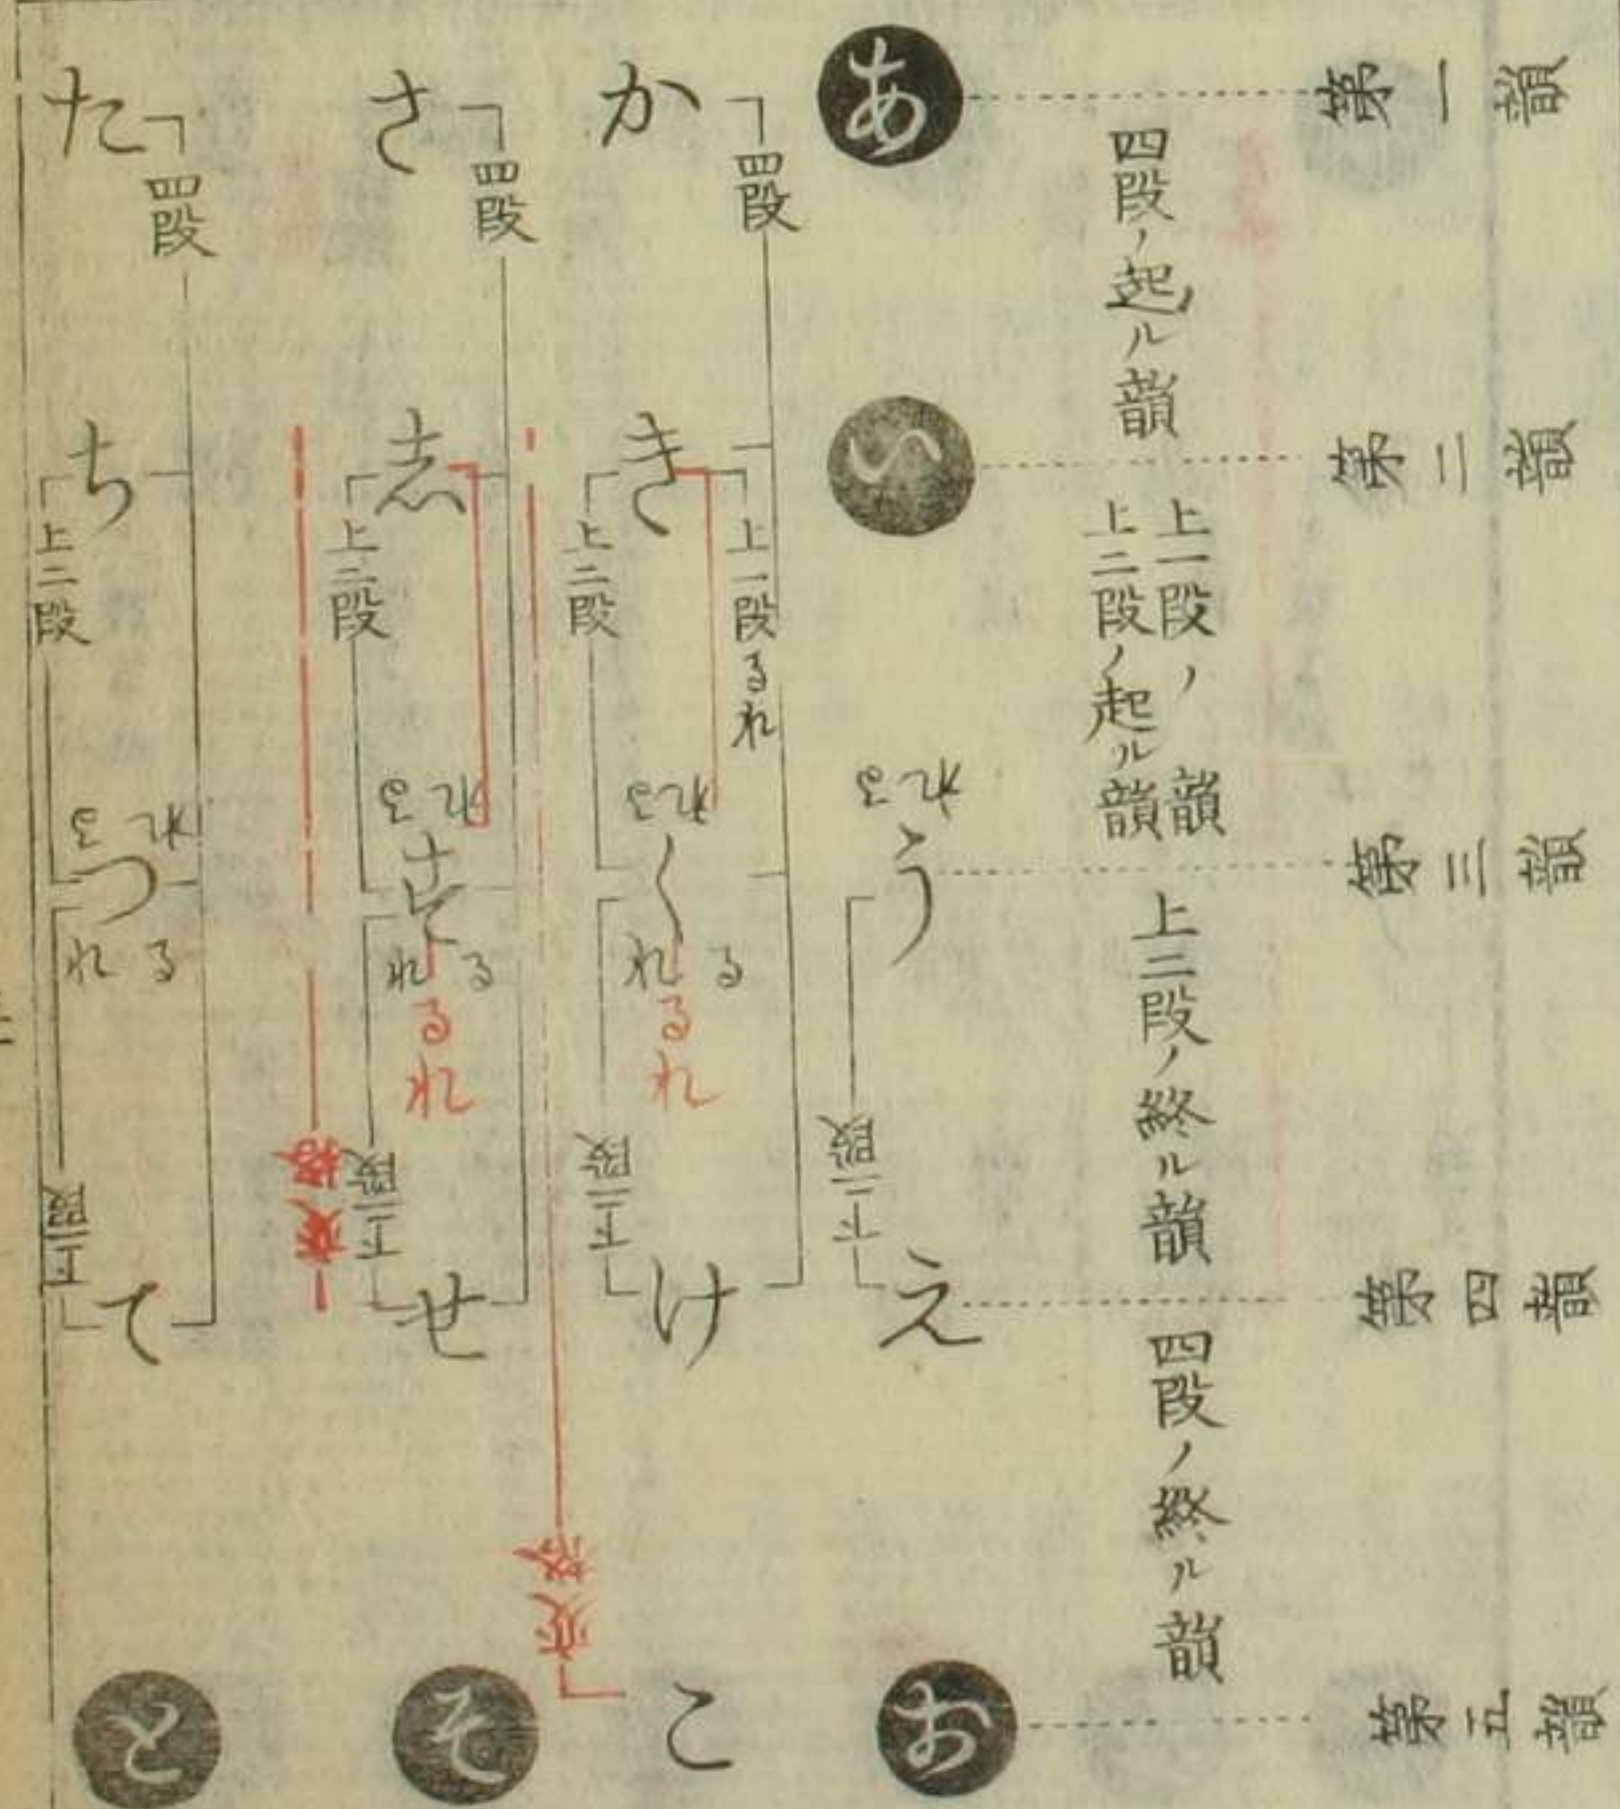 第一韻
第二韻
第三韻
第四韻
第五韻
四段ノ起ル韻
上一段ノ韻
上二段ノ起ル韻
上二段ノ終ル韻
四段ノ終ル韻
あ
い
うるれ
下二段
え
お
か
四段
き
上一段るれ
上二段
くるれ
るれ
るれ
下二段
け
変格
こ
さ
四段
志
上二段
するれ
るれ
るれ
下二段
せ
変格
そ
た
四段
ち
上二段
つるれ
るれ
下二段
て
と